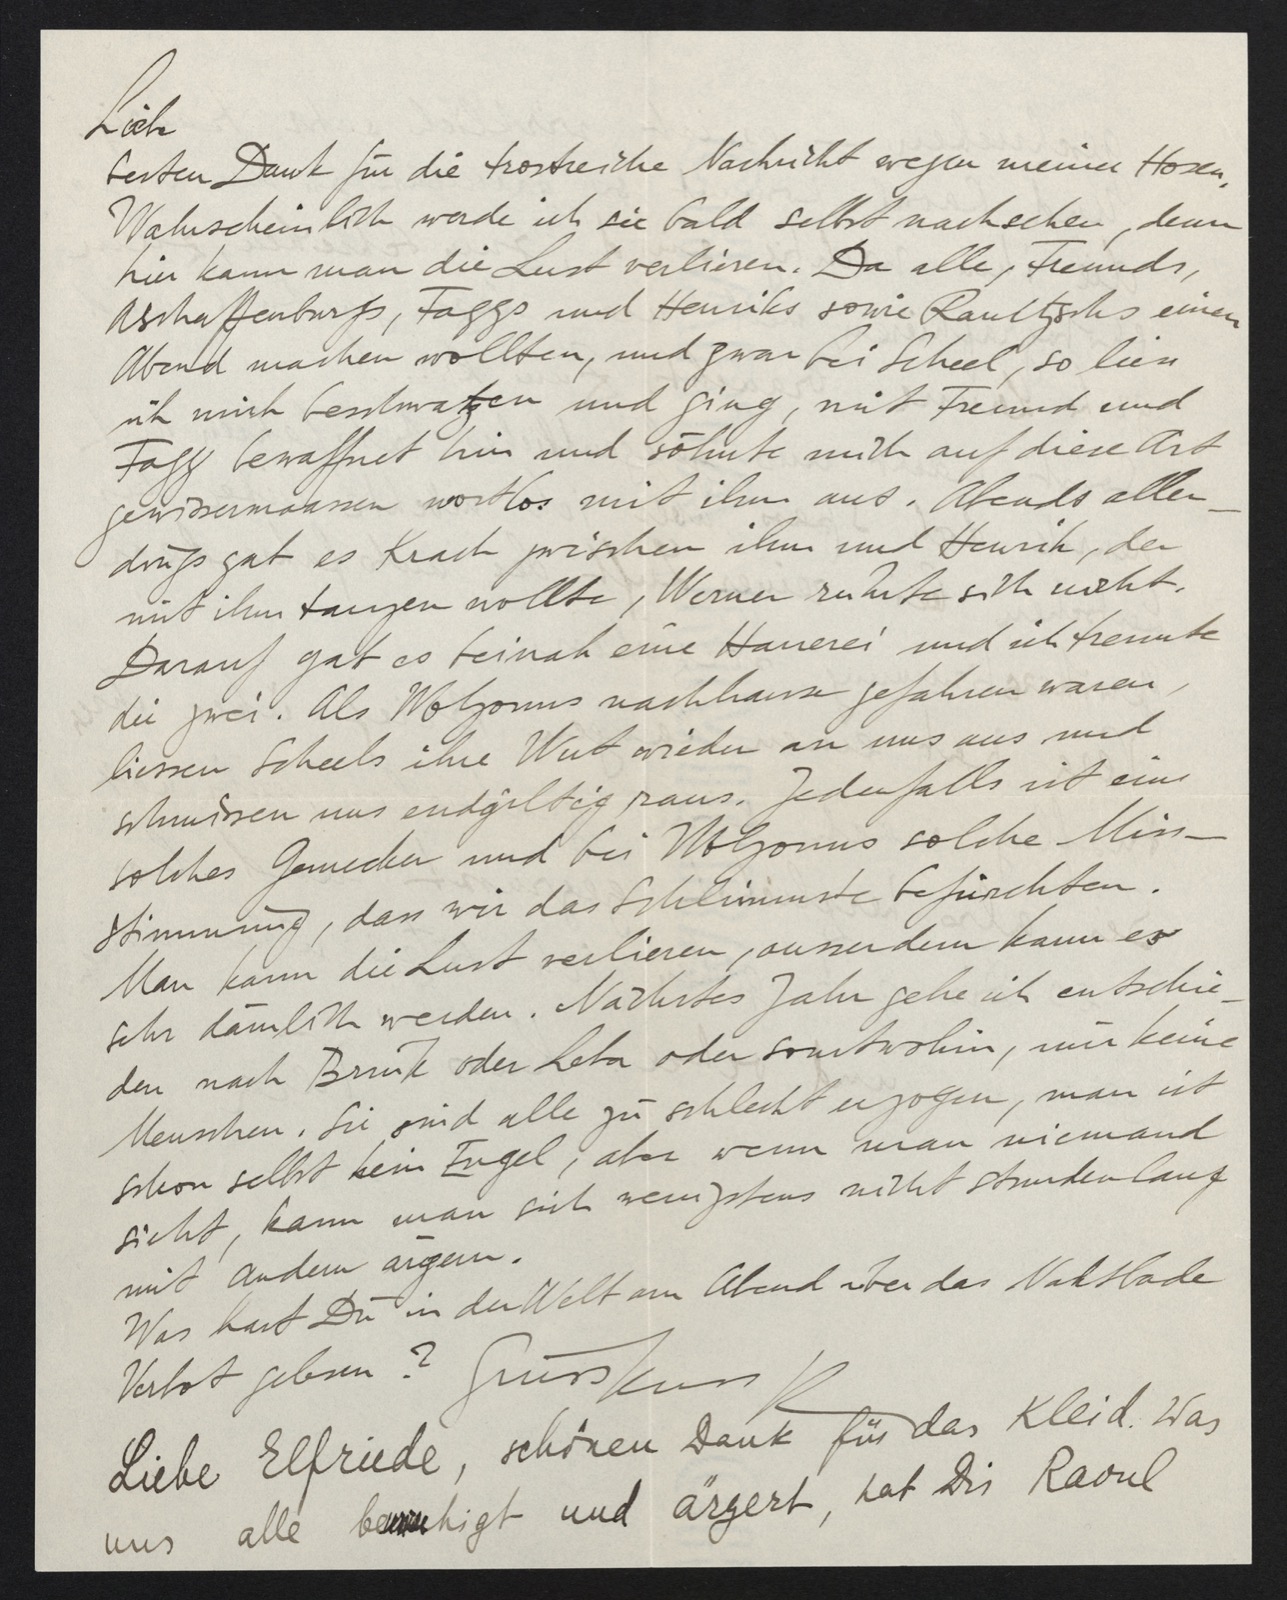 Liebe
besten Dank für die trostreiche Nachricht wegen meiner Hosen.
Wahrscheinlich werde ich sie bald selbst nachsehen, denn
hier kann man die Lust verlieren. Da alle, Freunds,
Aschaffenburgs, Faggs und Henriks sowie einen
Abend machen wollten, und zwar bei Scheel, so liess
ich mich beschwatzen und ging, mit Freund und
Fagg bewaffnet hin und söhnte mich auf diese Art
gewissermaassen wortlos mit ihm aus. Abends aller-
dings gab es Krach zwischen ihm und Henrik, der
mit ihm tanzen wollte, Werner rührte sich nicht.
Darauf gab es beinah eine Hauerei und ich trennte
die zwei. Als Wolzonns nachhause gefahren waren,
liessen Scheels ihre Wut wieder an uns aus und
schmissen uns endgültig raus. Jedenfalls ist ein
solches Gemecker und bei Wolzonns solche Miss-
stimmung, dass wir das Schlimmste befürchten.
Man kann die Lust verlieren, ausserdem kann es
sehr dämlich werden. Nächstes Jahr gehe ich entschie-
den nach Bruck oder Leba oder sonstwohin, nur keine
Menschen. Sie sind alle zu schlecht erzogen, man ist
schon selbst kein Engel, aber wenn man niemand
sieht, kann man sich wenigstens nicht stundenlang
mit andern ärgern.
Was hast Du in der Welt am Abend über das Nacktbade
Verbot gelesen? Gruss Kuss R
Liebe Elfriede, schönen Dank für das Kleid. Was
uns alle beunruhigt und ärgert, hat Dir Raoul